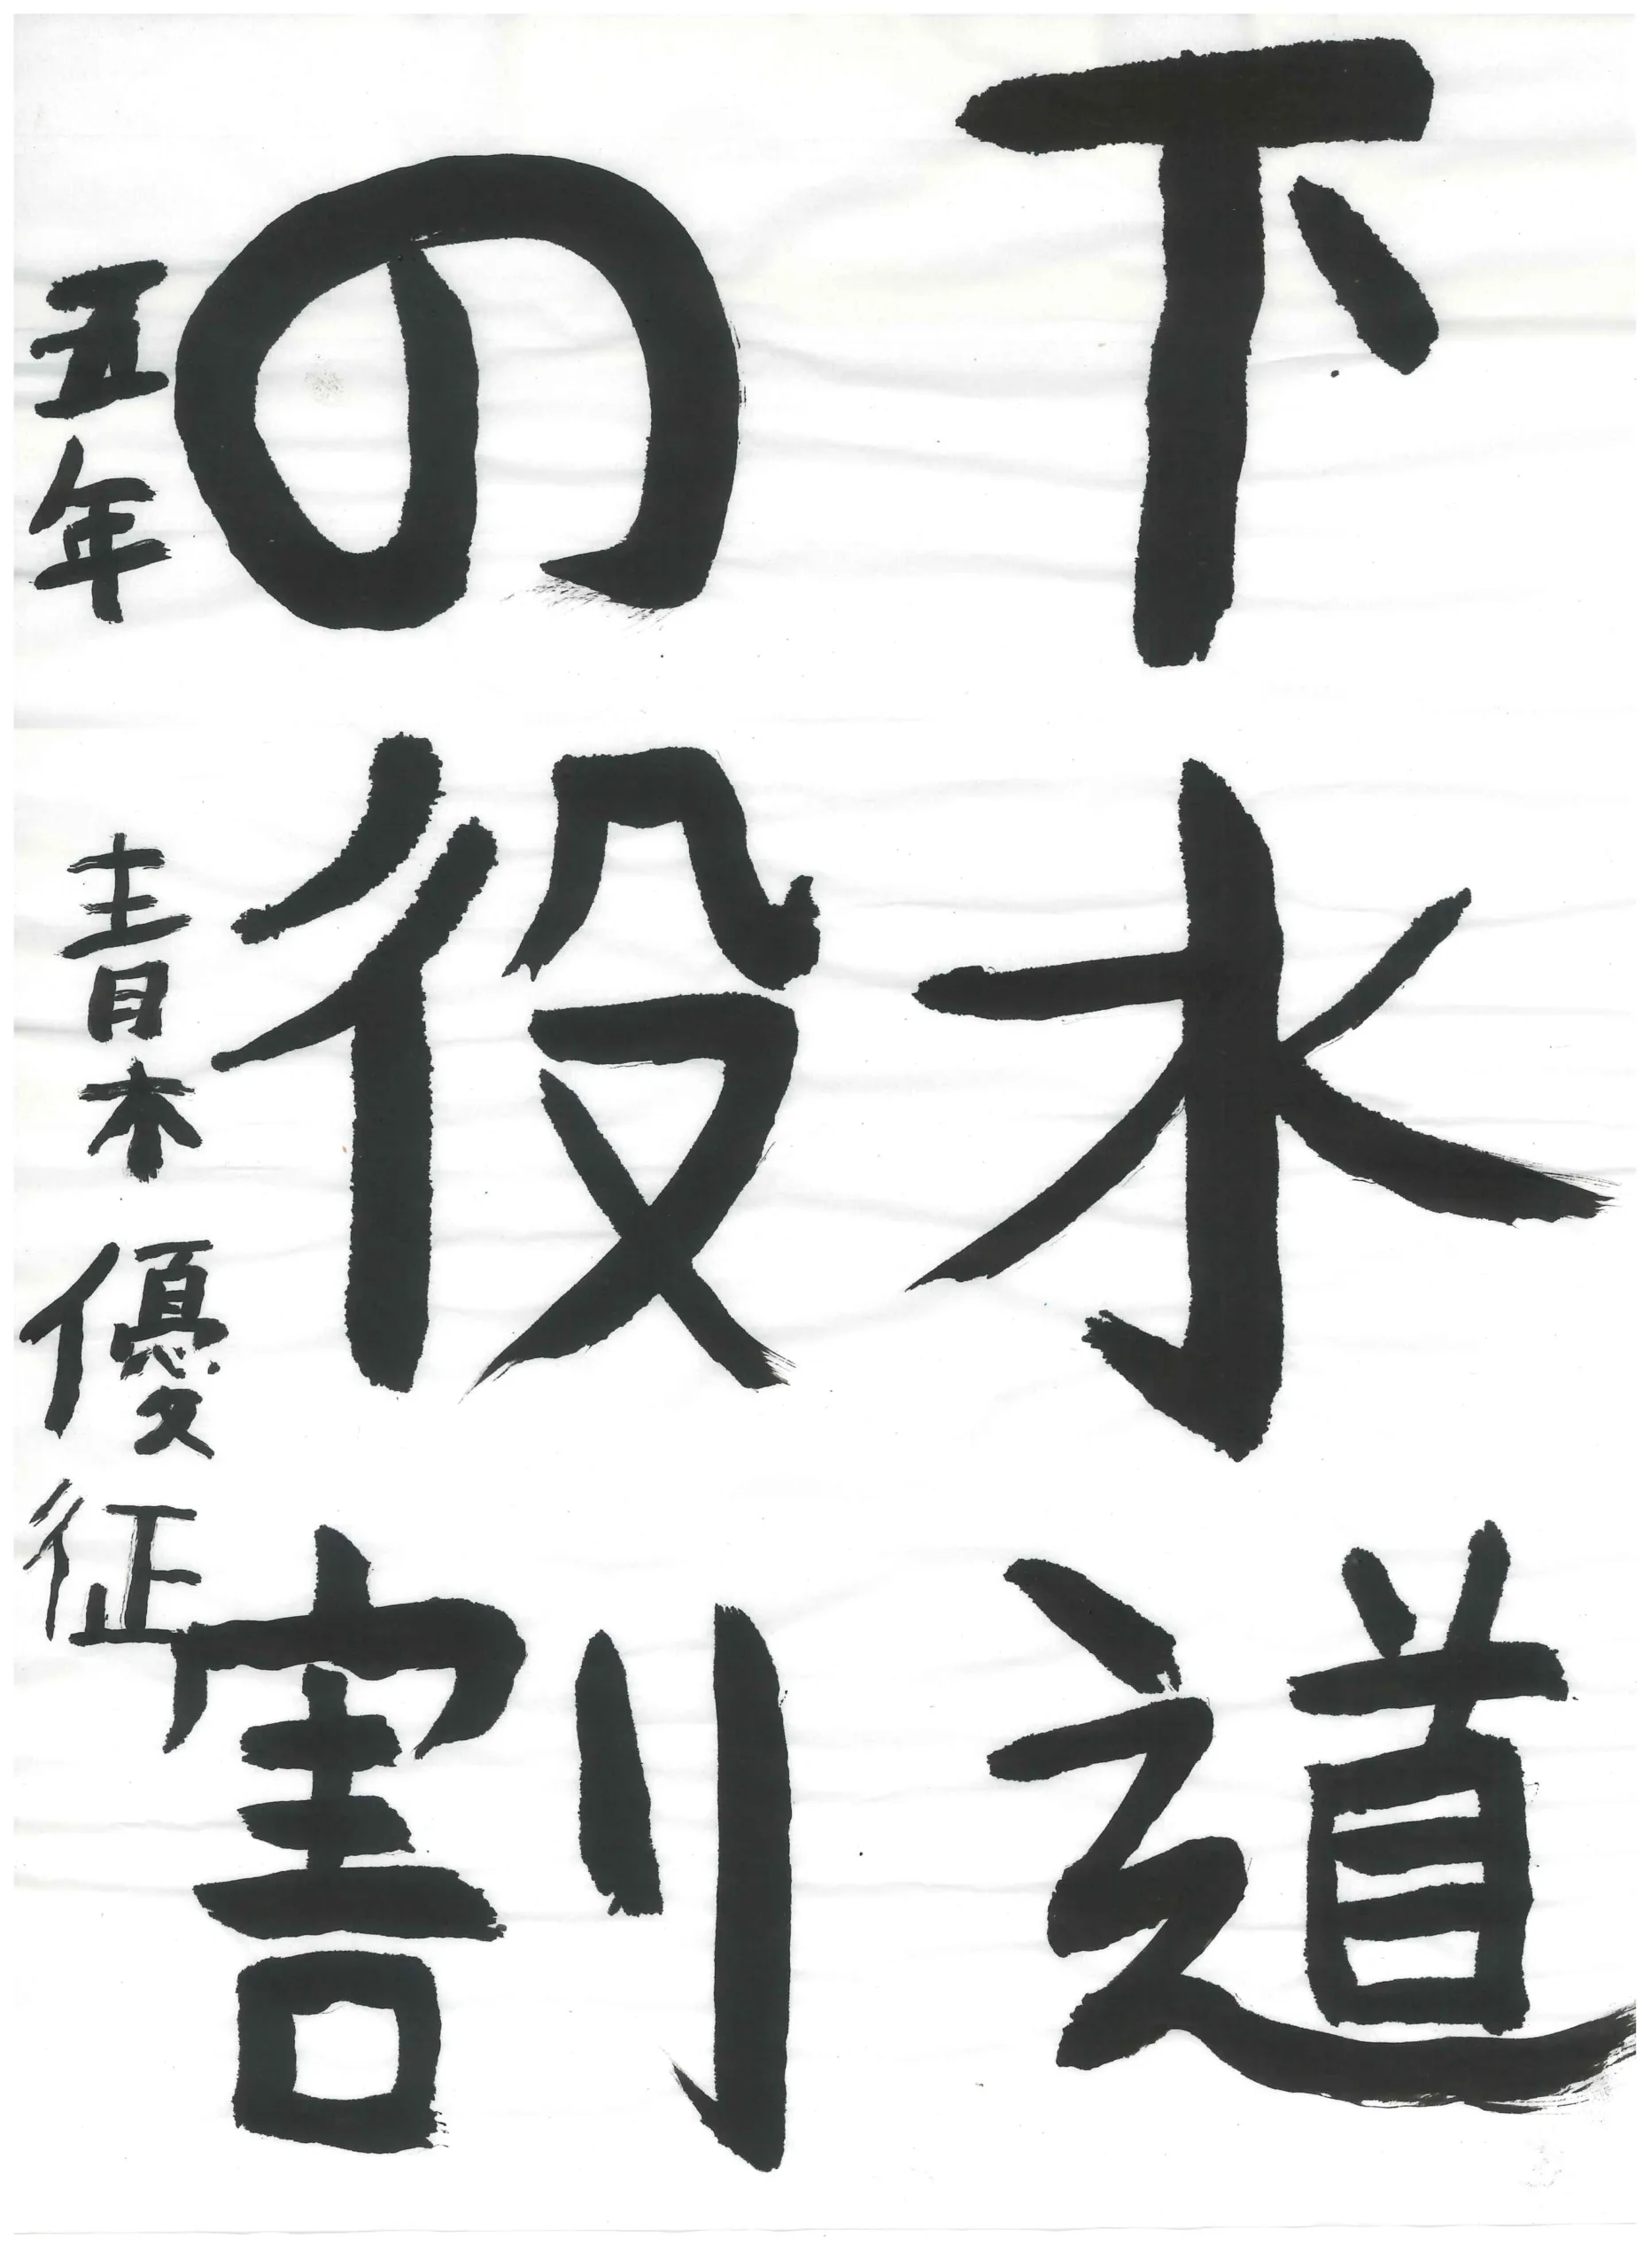 下水道
の役割
五年 青木優征